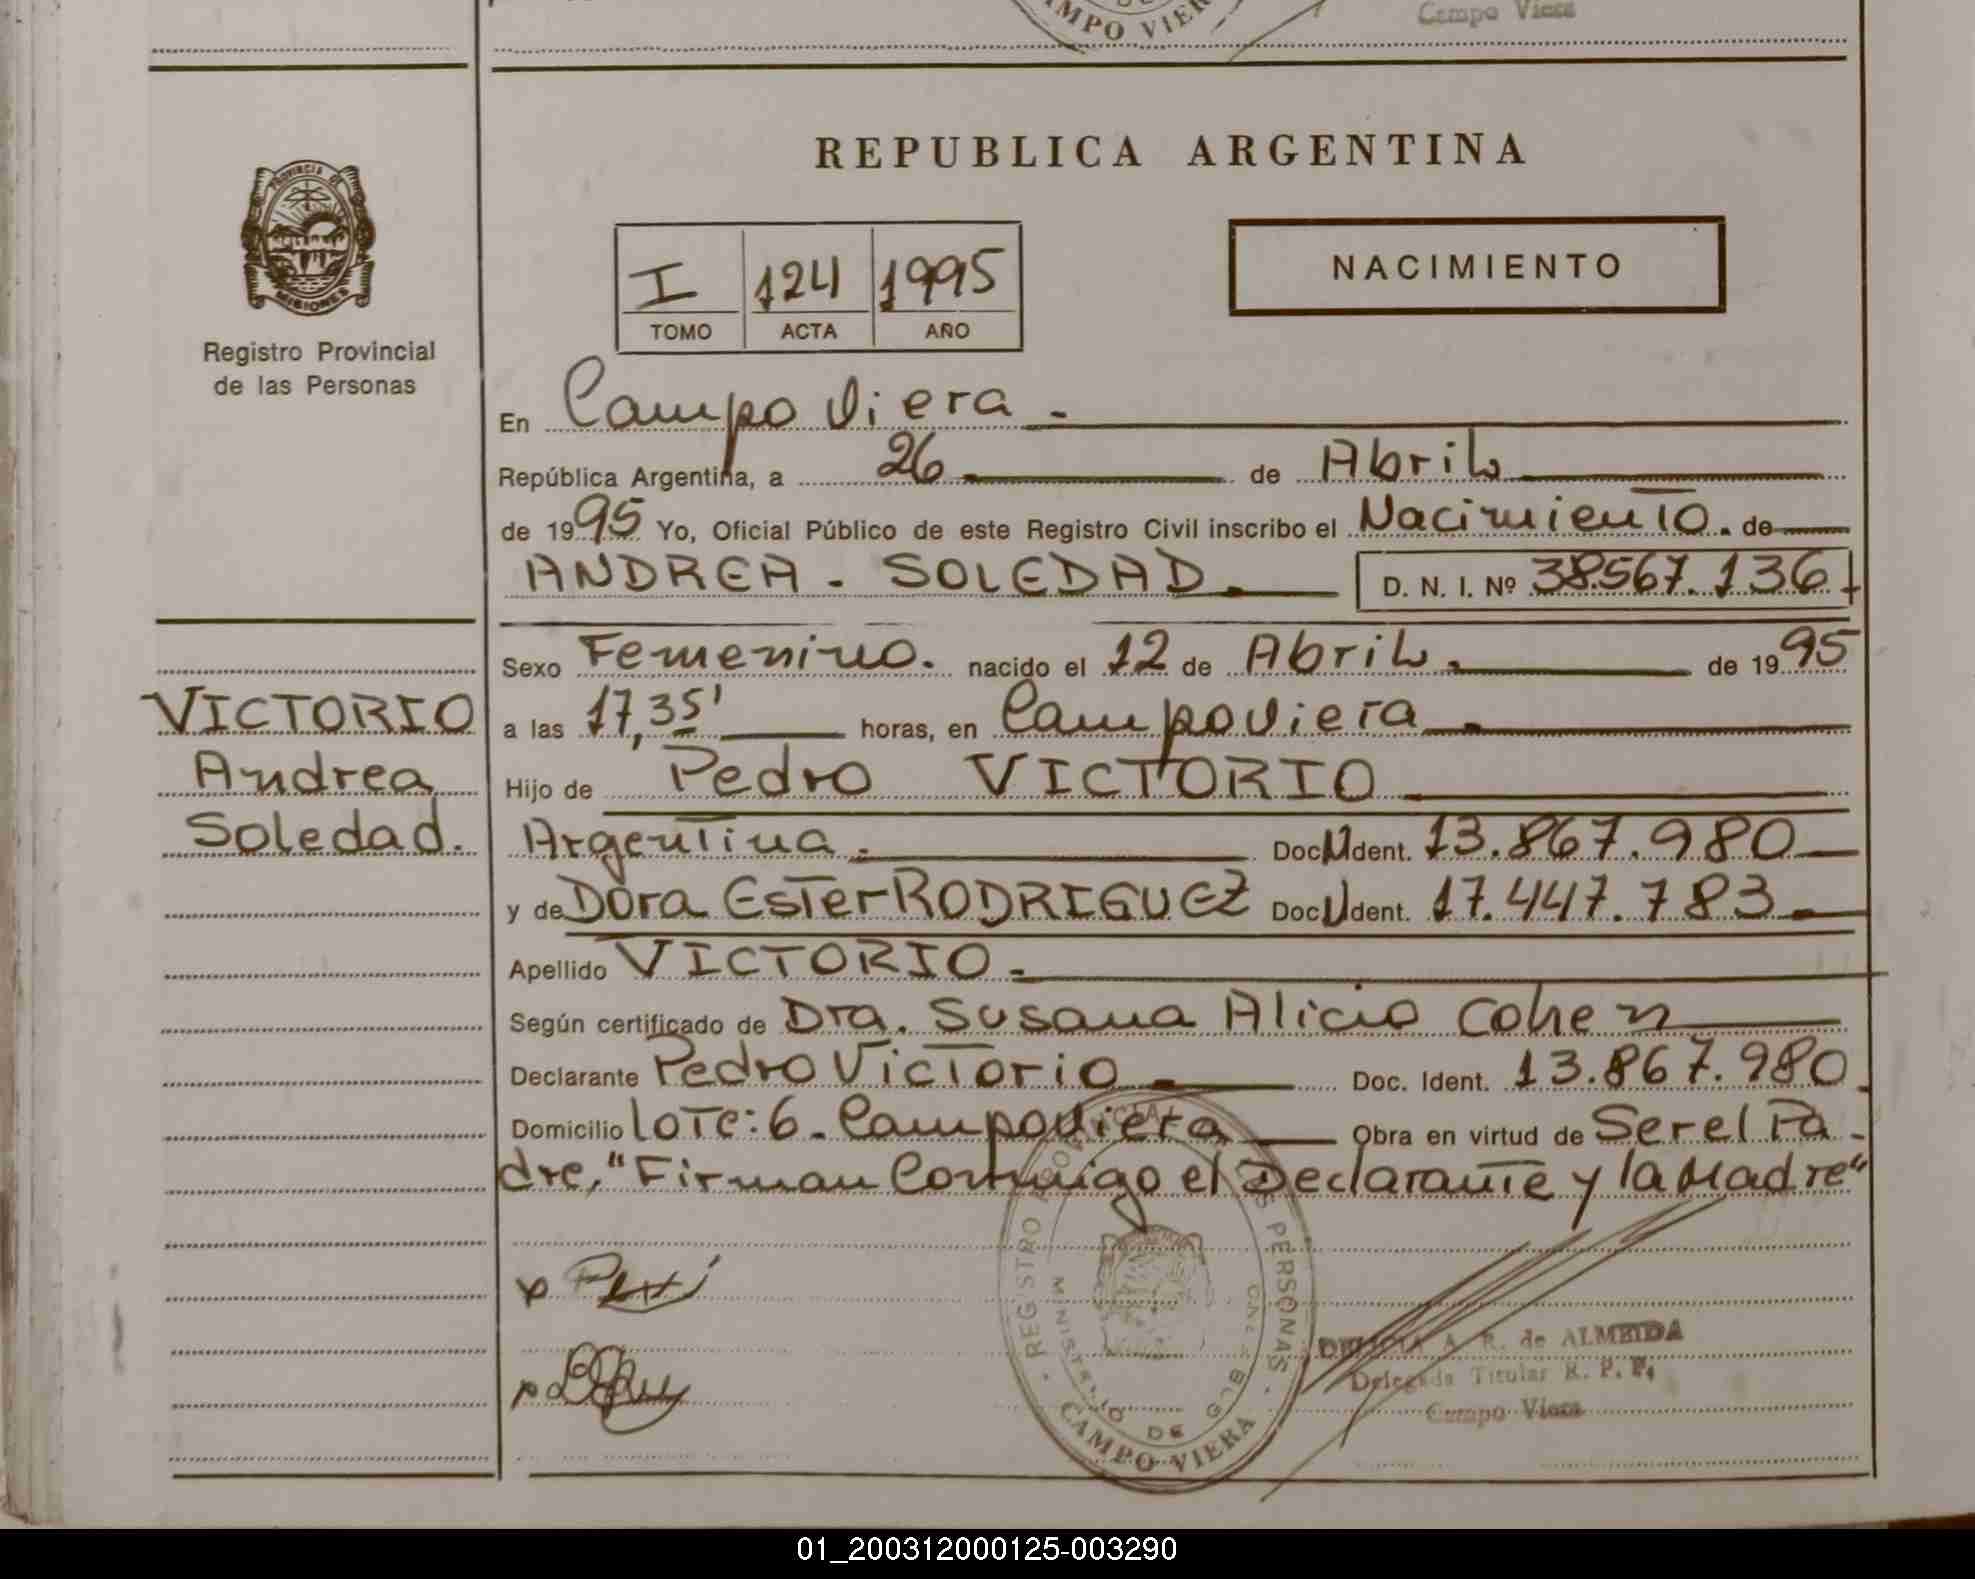 CAMPO VIERA
Campo Viera
REPUBLICA ARGENTINA
PROVINCIA DE
MISIONES
Registro Provincial
de las Personas
I 124 1995
TOMO ACTA AÑO
NACIMIENTO
En Campo Viera.
República Argentina, a 26 de Abril
de 1995 Yo, Oficial Público de este Registro Civil inscribo el Nacimiento. de
ANDREA - SOLEDAD. D. N. I. Nº 38.567.136
Sexo Femenino. nacido el 12 de Abril. de 1995
VICTORIO
Andrea
Soledad.
a las 17,35' horas, en Campo Viera
Hijo de Pedro VICTORIO
Argentina. Doc. U Ident. 13.867.980
y de Dora Ester RODRIGUEZ Doc. U Ident. 17.447.783
Apellido VICTORIO.
Según certificado de Dra. Susana Alicia Cohen
Declarante Pedro Victorio Doc. Ident. 13.867.980
Domicilio lote: 6. Campo Viera Obra en virtud de Ser el Pa-
dre. "Firman Conmigo el Declarante y la Madre"
REGISTRO PROVINCIAL DE LAS PERSONAS
MINISTERIO DE GOB
CAMPO VIERA
A. R. de ALMEIDA
Delegada Titular R. P. P.
Campo Viera
01_200312000125-003290